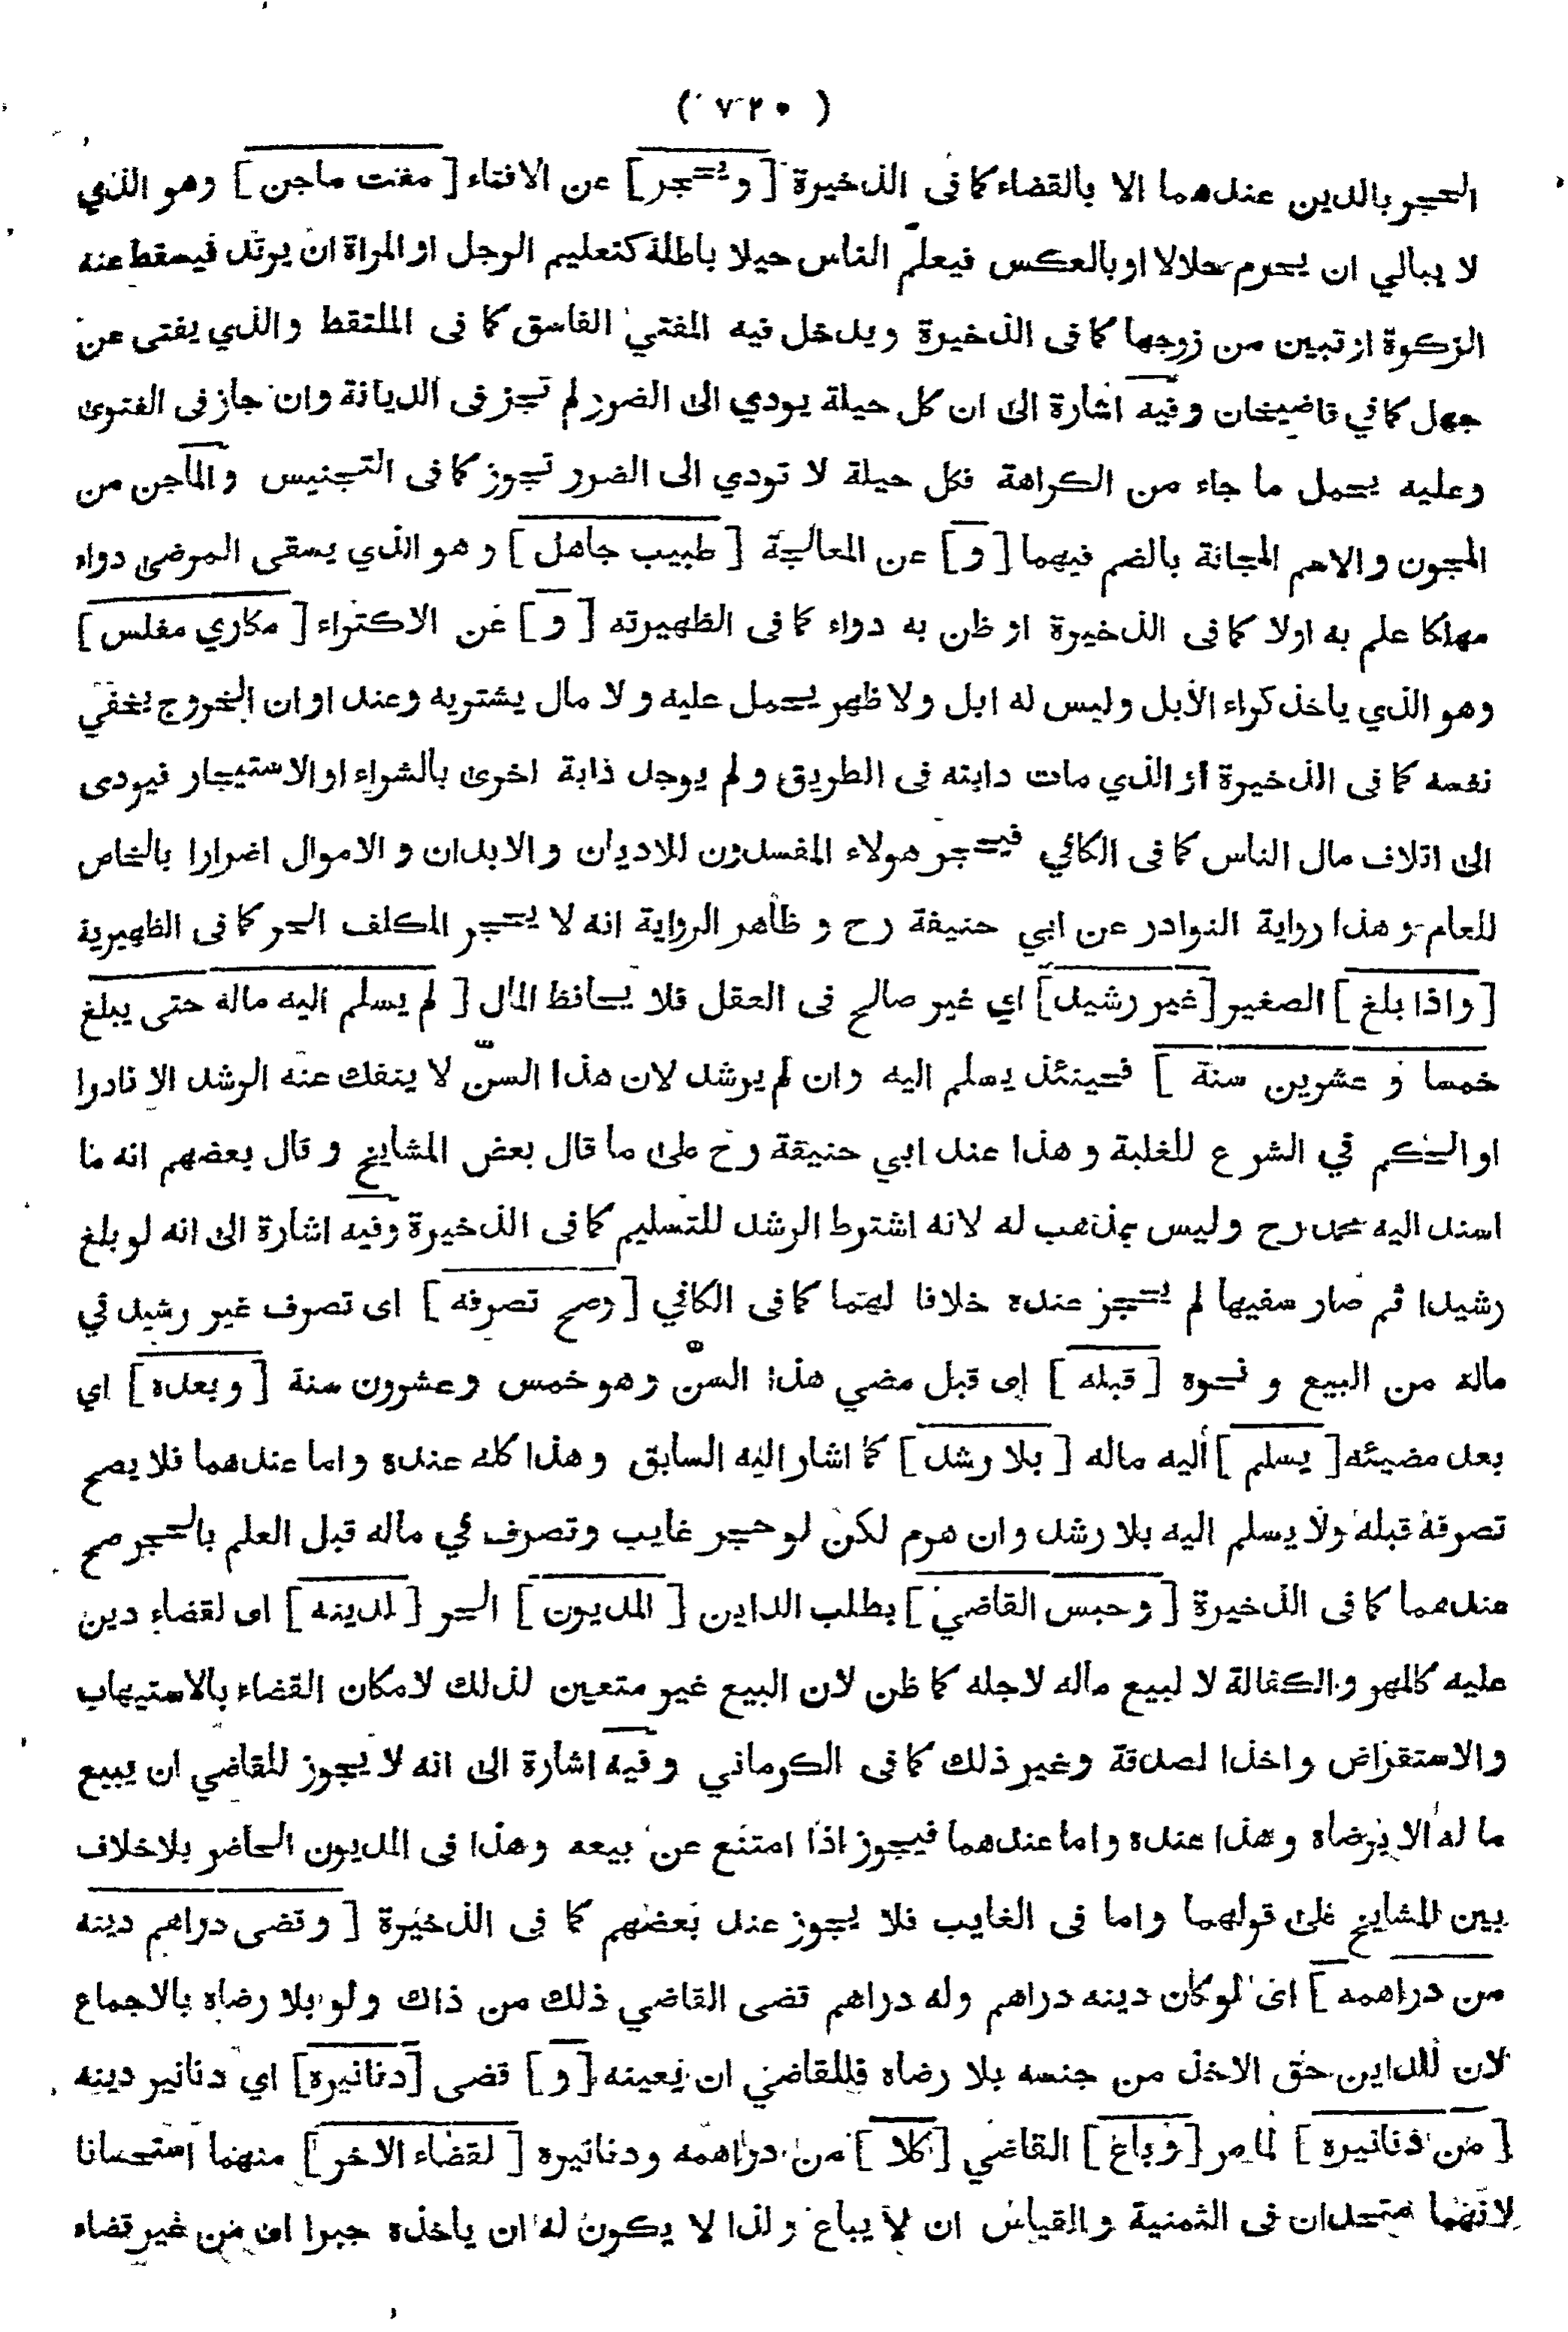 ( ٧٢٠ )
الحجر بالدين عندهما الا بالقضاء كما فى الذخيرة [ و يحجر ] عن الافتاء [ مفت ماجن ] وهو الذي
لا يبالي ان يحرم حلالا او بالعكس فيعلم الناس حيلا باطلة كتعليم الرجل او المراة ان يرتد فيسقط عنه
الزكوة او تبين من زوجها كما فى الذخيرة ويدخل فيه المفتي الفاسق كما فى الملتقط والذي يفتى عن
جهل كما في قاضيخان وفيه اشارة الى ان كل حيلة يودي الى الضرر لم تجز فى الديانة وان جاز فى الفتوى
وعليه يحمل ما جاء من الكراهة فكل حيلة لا تودي الى الضرر تجوز كما فى التجنيس والماجن من
المجون والاسم المجانة بالضم فيهما [ و ] عن المعالجة [ طبيب جاهل ] وهو الذي يسقى المرضى دواء
مهلكا علم به اولا كما فى الذخيرة او ظن به دواء كما فى الظهيرته [ و ] عن الاكتراء [ مكاري مفلس ]
وهو الذي ياخذ كراء الابل وليس له ابل ولا ظهر يحمل عليه ولا مال يشتريه وعند اوان الخروج يخفي
نفسه كما فى الذخيرة او الذي مات دابته فى الطريق ولم يوجد دابة اخرى بالشراء او الاستيجار فيودى
الى اتلاف مال الناس كما فى الكافي فيحجر هولاء المفسدون للاديان والابدان والاموال اضرارا بالخاص
للعام وهذا رواية النوادر عن ابي حنيفة رح و ظاهر الرواية انه لا يحجر المكلف الحر كما فى الظهيرية
[ واذا بلغ ] الصغير [ غير رشيد ] اي غير صالح فى العقل فلا يحافظ المال [ لم يسلم اليه ماله حتى يبلغ
خمسا و عشرين سنة ] فحينئذ يسلم اليه وان لم يرشد لان هذا السن لا ينفك عنه الرشد الا نادرا
او الحكم في الشرع للغلبة وهذا عند ابي حنيفة رح على ما قال بعض المشايخ وقال بعضهم انه ما
اسند اليه محمد رح وليس بمذهب له لانه اشترط الرشد للتسليم كما فى الذخيرة وفيه اشارة الى انه لو بلغ
رشيدا ثم صار سفيها لم يحجر عنده خلافا لهما كما فى الكافي [ وصح تصرفه ] اى تصرف غير رشيد في
ماله من البيع و نحوه [ قبله ] اى قبل مضي هذا السن وهو خمس وعشرون سنة [ وبعده ] اي
بعد مضيئه [ يسلم ] اليه ماله [ بلا رشد ] كما اشار اليه السابق وهذا كله عنده واما عندهما فلا يصح
تصرفه قبله ولا يسلم اليه بلا رشد وان هرم لكن لو حجر غايب وتصرف في ماله قبل العلم بالحجر صح
عندهما كما فى الذخيرة [ وحبس القاضي ] بطلب الداين [ المديون ] الحر [ لدينه ] اى لقضاء دين
عليه كالمهر والكفالة لا لبيع ماله لاجله كما ظن لان البيع غير متعين لذلك لامكان القضاء بالاستيهاب
والاستقراض واخذا لصدقة وغير ذلك كما فى الكرماني وفيه اشارة الى انه لا يجوز للقاضي ان يبيع
ما له الا برضاه وهذا عنده واما عندهما فيجوز اذا امتنع عن بيعه وهذا فى المديون الحاضر بلاخلاف
بين المشايخ على قولهما واما فى الغايب فلا يجوز عند بعضهم كما فى الذخيرة [ وقضى دراهم دينه
من دراهمه ] اى لو كان دينه دراهم وله دراهم قضى القاضي ذلك من ذاك ولو بلا رضاه بالاجماع
لان للداين حق الاخذ من جنسه بلا رضاه فللقاضي ان يعينه [ و ] قضى [ دنانيره ] اي دنانير دينه
[ من دنانيره ] لما مر [ وباع ] القاضي [ كلا ] من دراهمه ودنانيره [ لقضاء الاخر ] منهما استحسانا
لانهما متحدان فى الثمنية والقياس ان لا يباع ولذا لا يكون له ان ياخذه جبرا اى من غير قضاء